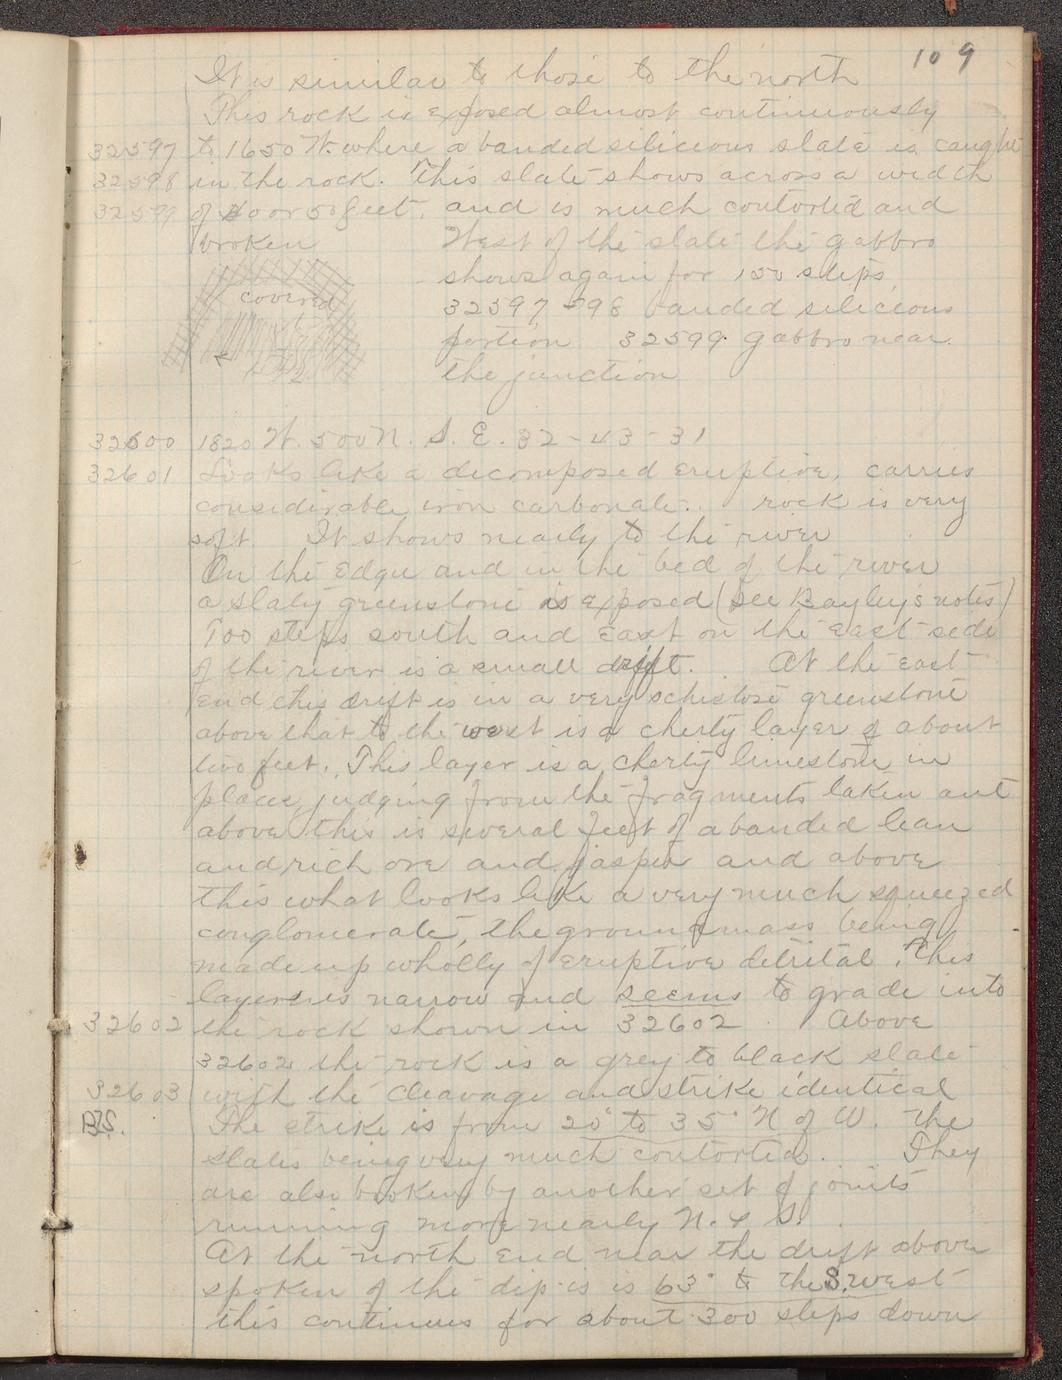 109
It is similar to those to the north
This rock is exposed almost continuously
32597 to 1650 W. where a banded silicious slate is caught
32598 in the rock. This slate shows across a width
32599 of 40 or 50 feet. and is much contorted and
broken
West of the slate the gabbro
shows again for 150 steps
covered
32597-98 banded silicious
portion 32599 gabbro near
the junction
32600 1820 W. 500 N. S.E. 32-43-31
32601 Looks like a decomposed eruptive, carries
considerable iron carbonate. rock is very
soft. It shows nearly to the river
On the edge and in the bed of the river
a slaty greenstone is exposed (See Bayley's notes)
100 steps south and east on the east side
of the river is a small drift. At the east
end this drift is in a very schistose greenstone
above that to the west is a cherty layer of about
two feet. This layer is a cherty limestone in
place, judging from the fragments taken out
above this is several feet of a banded lean
and rich ore and jasper and above
this what looks like a very much squeezed
conglomerate, the groundmass being
made up wholly of eruptive detrital. This
layer is narrow and seems to grade into
32602 the rock shown in 32602 Above
32602 the rock is a grey to black slate
32603 with the cleavage and strike identical
B.S. The strike is from 20° to 35° N of W. the
slates being very much contorted. They
are also broken by another set of joints
running more nearly N. & S.
At the north end near the drift above
spoken of the dip is is 63° to the S.west
this continues for about 300 steps down